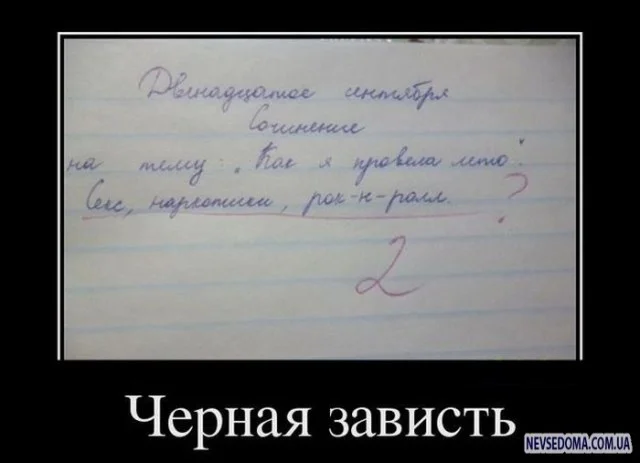 Двенадцатое сентября
Сочинение
на тему: „Как я провела лето".
Секс, наркотики, рок-н-ролл. ?
2
Черная зависть
NEVSEDOMA.COM.UA